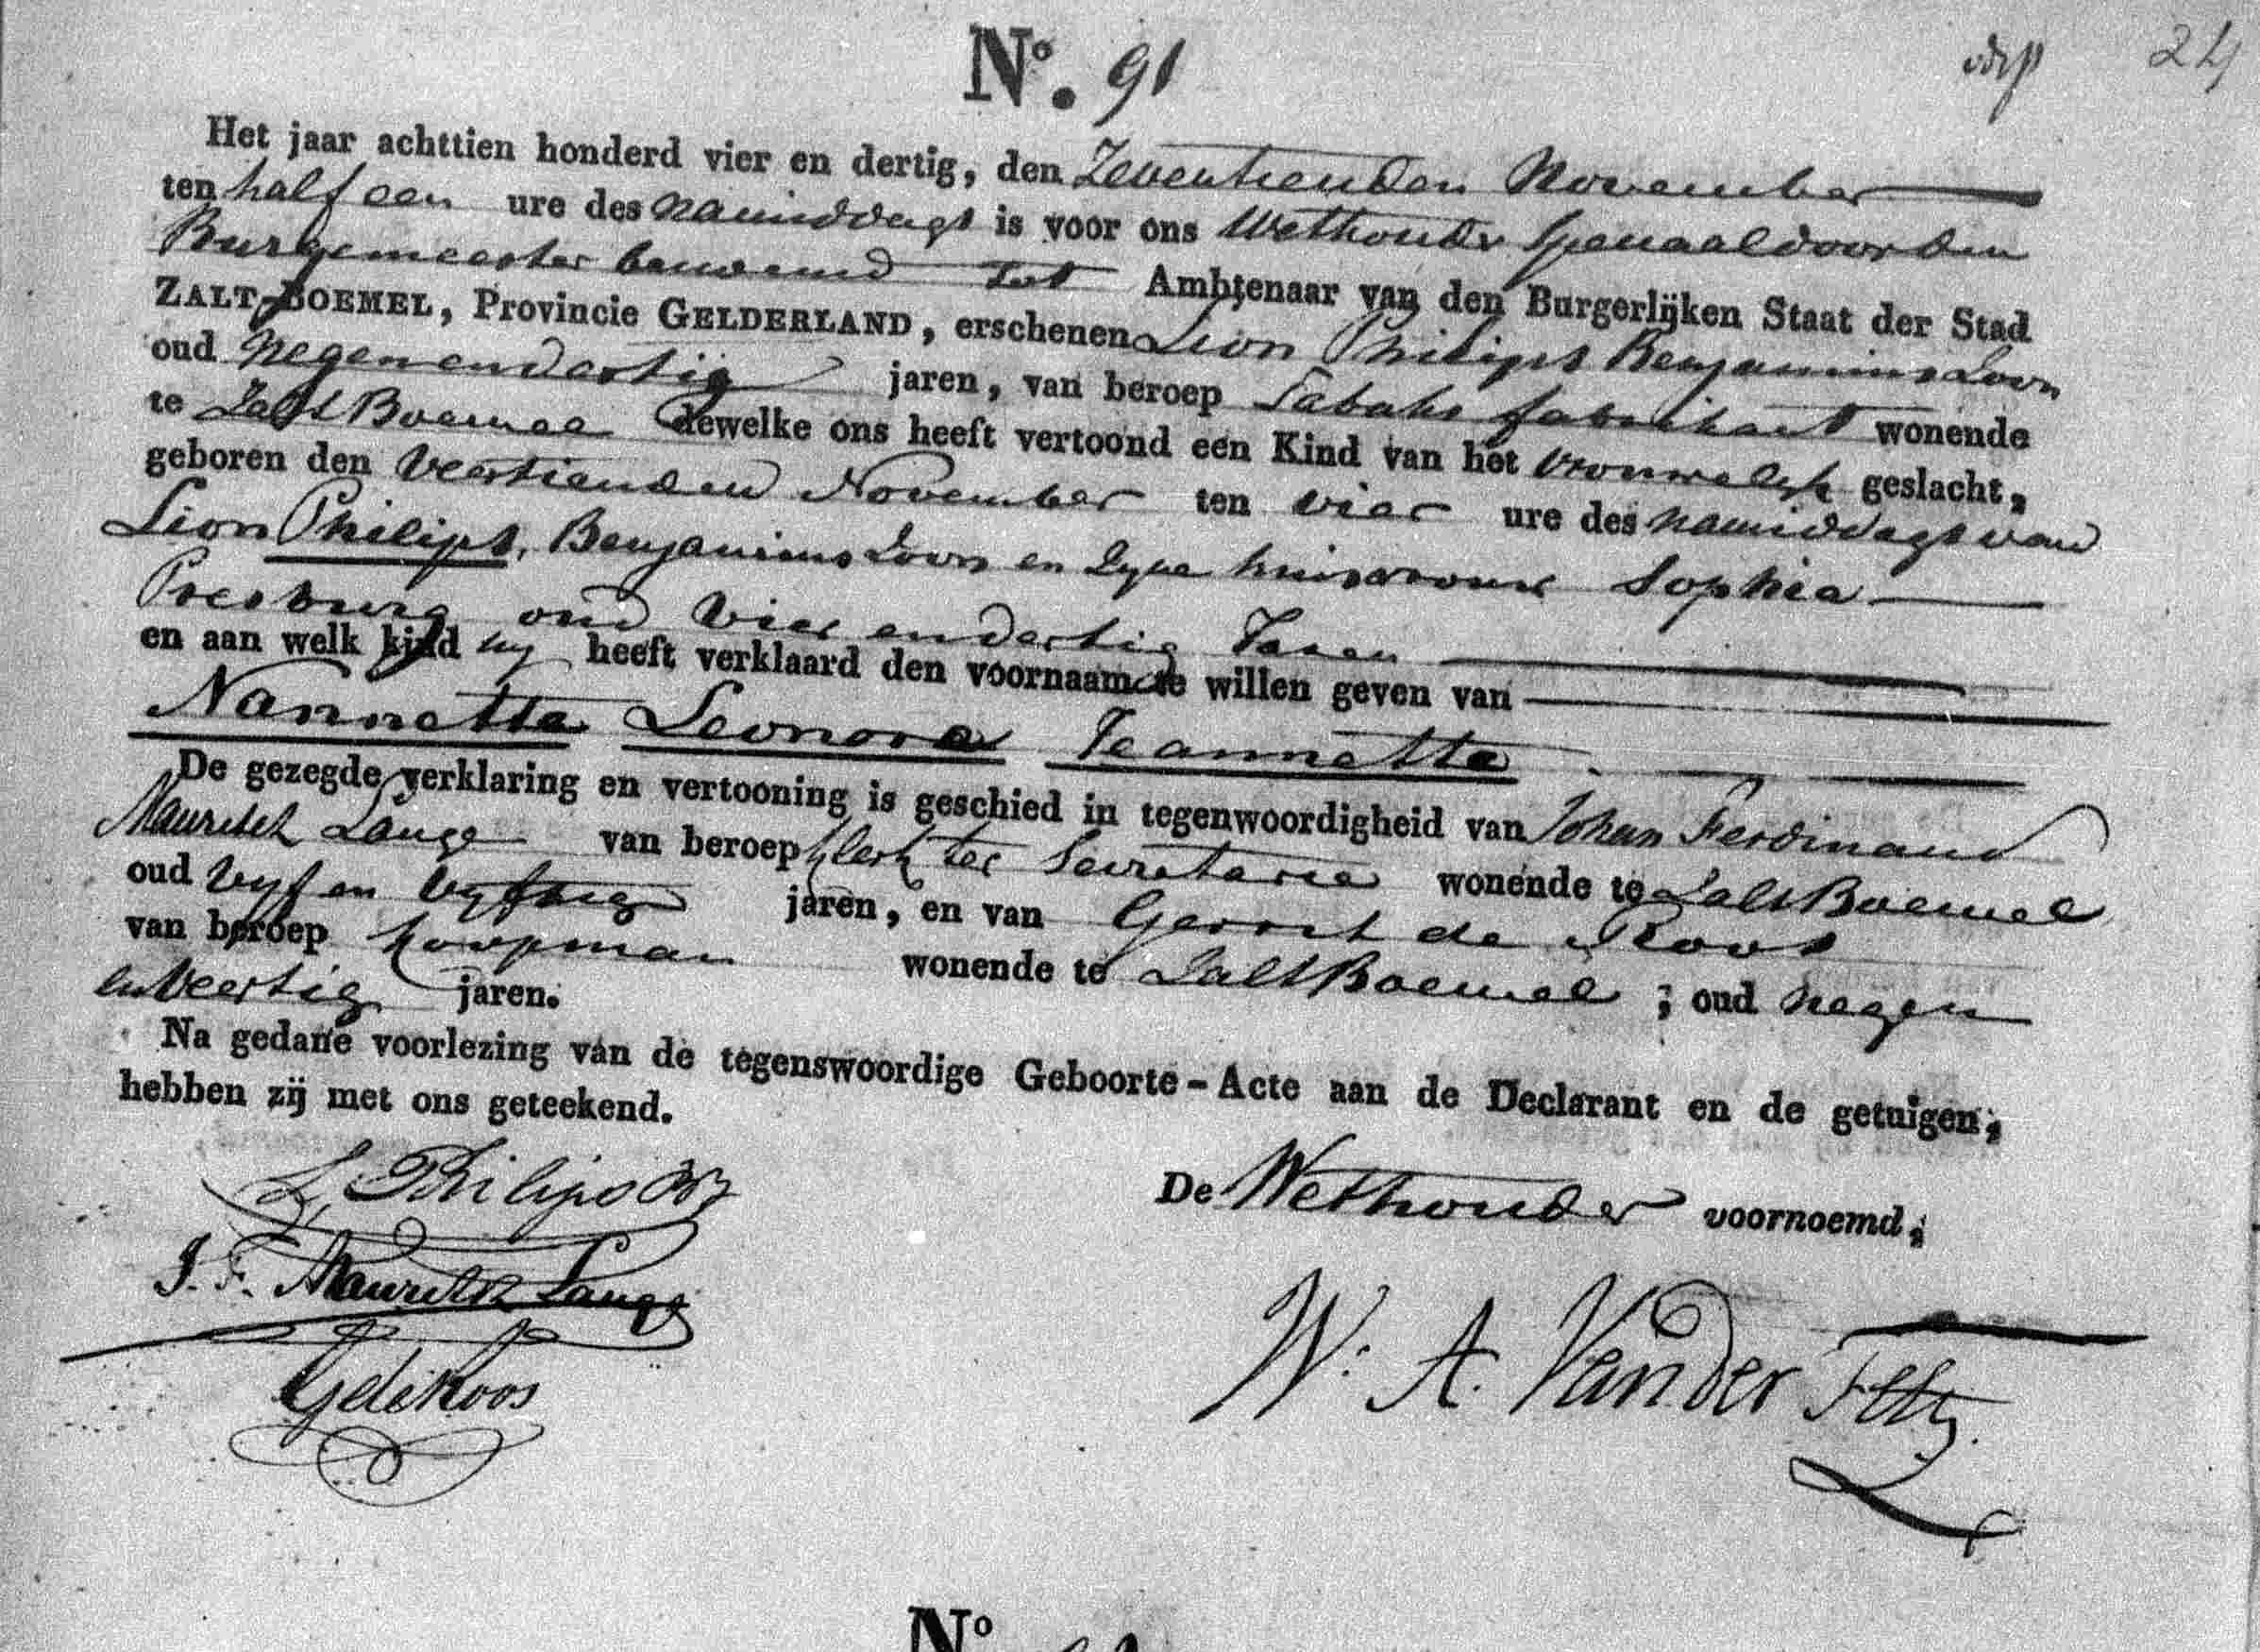 N.º 91
24
Het jaar achttien honderd vier en dertig, den Zeventienden November
ten half een ure des namiddags is voor ons Wethouder Speciaal door den
Burgemeester benoemd tot Ambtenaar van den Burgerlijken Staat der Stad
ZALT-BOEMEL, Provincie GELDERLAND, erschenen Lion Philips Benjamins Zoon
oud Negenendertig jaren, van beroep Tabaks fabrikant wonende
te ZaltBoemel dewelke ons heeft vertoond een Kind van het vrouwelijk geslacht,
geboren den Veertienden November ten vier ure des namiddags van
Lion Philips, Benjamins Zoon en Zyne huisvrouw Sophia
Presburg oud Vier en dertig Jaren
en aan welk kind hy heeft verklaard den voornaam te willen geven van
Nannette Leonora Jeannette.
De gezegde verklaring en vertooning is geschied in tegenwoordigheid van Johan Ferdinand
Mauritsz Lange van beroep klerk ter Secretarie wonende te ZaltBoemel
oud Vyf en Vyftig jaren, en van Gerrit de Roos
van beroep Koopman wonende te ZaltBoemel; oud negen
en Veertig jaren.
Na gedane voorlezing van de tegenswoordige Geboorte-Acte aan de Declarant en de getuigen,
hebben zij met ons geteekend.
L. Philips Bz
De Wethouder voornoemd,
J. F. Mauritsz Lange
W. A. Van der Feltz
G de Roos
Nº